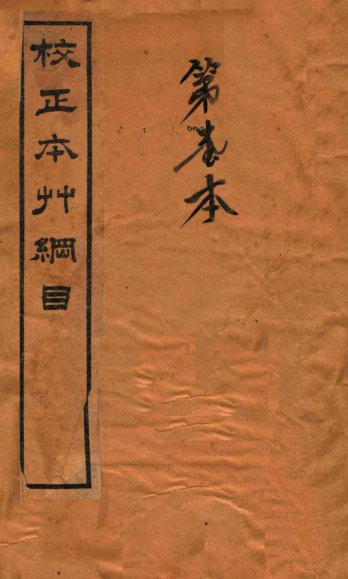 第壱本
校正本艸綱目